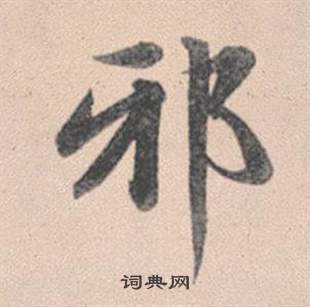 邪
词典网